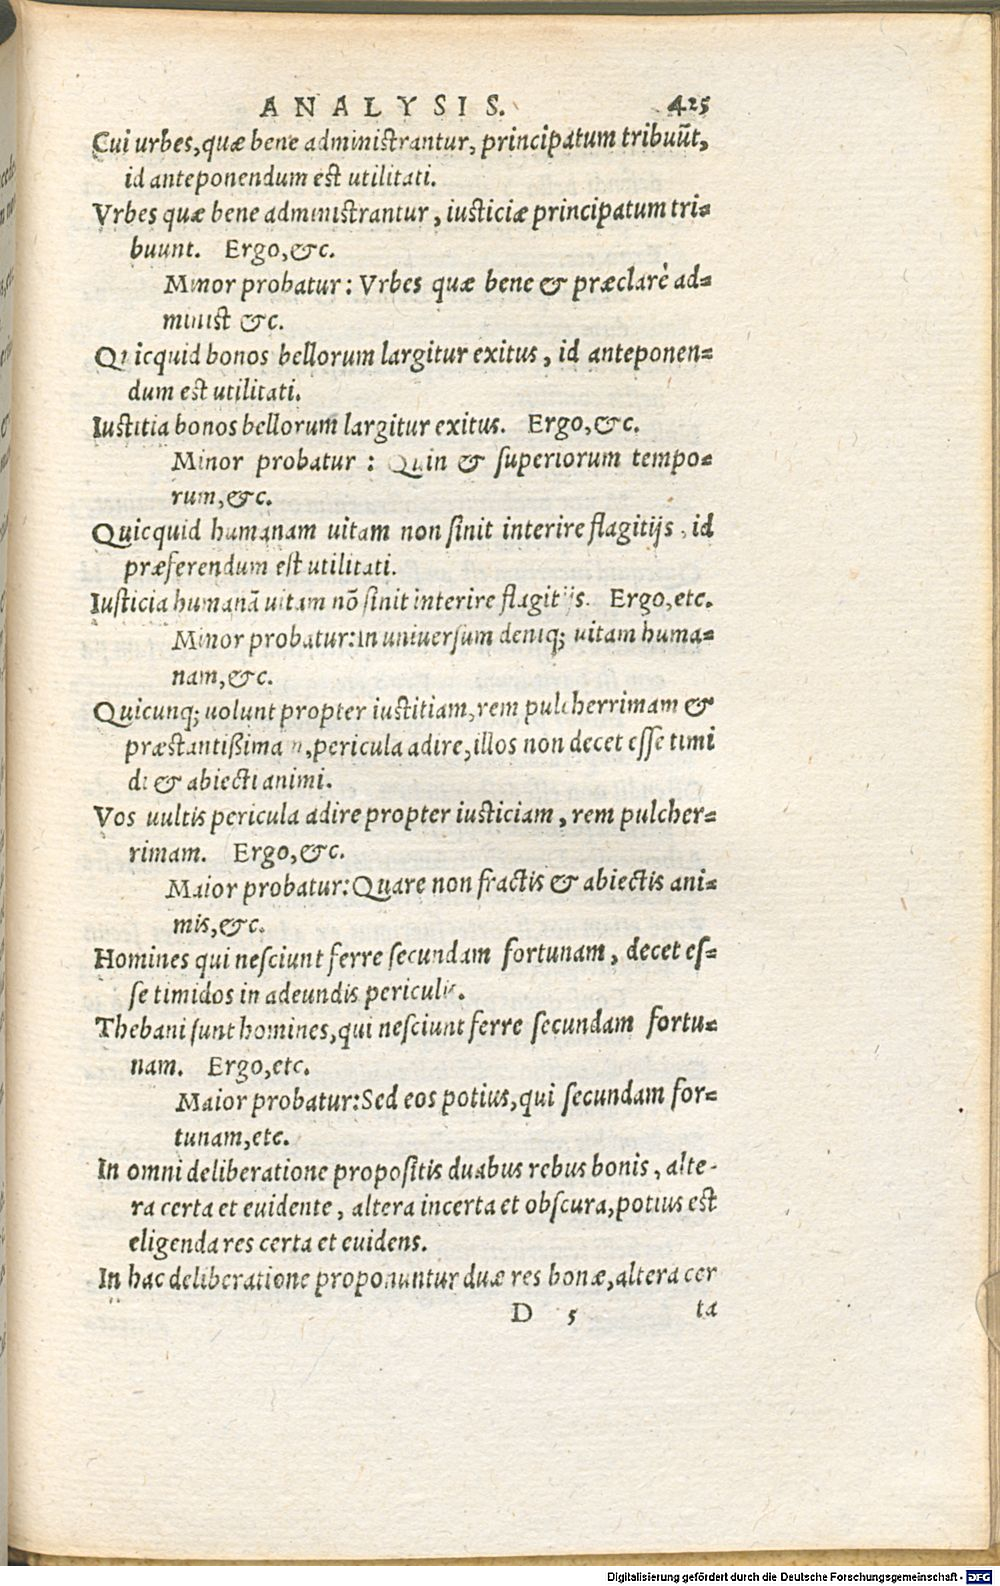 ANALYSIS. 425
Cui urbes, quæ bene administrantur, principatum tribuũt,
id anteponendum est utilitati.
Vrbes quæ bene administrantur, iusticiæ principatum tri=
buunt. Ergo, &c.
Minor probatur: Vrbes quæ bene & præclarè ad=
minist &c.
Quicquid bonos bellorum largitur exitus, id anteponen=
dum est utilitati.
Iustitia bonos bellorum largitur exitus. Ergo, &c.
Minor probatur: Quin & superiorum tempo=
rum, &c.
Quicquid humanam uitam non sinit interire flagitijs, id
præferendum est utilitati.
Iusticia humanã uitam nõ sinit interire flagitijs. Ergo, etc.
Minor probatur: In uniuersum deniq; uitam huma=
nam, &c.
Quicunq; uolunt propter iustitiam, rem pulcherrimam &
præstantißimam, pericula adire, illos non decet esse timi
di & abiecti animi.
Vos uultis pericula adire propter iusticiam, rem pulcher=
rimam. Ergo, &c.
Maior probatur: Quare non fractis & abiectis ani=
mis, &c.
Homines qui nesciunt ferre secundam fortunam, decet es=
se timidos in adeundis periculis.
Thebani sunt homines, qui nesciunt ferre secundam fortu=
nam. Ergo, etc.
Maior probatur: Sed eos potius, qui secundam for=
tunam, etc.
In omni deliberatione propositis duabus rebus bonis, alte-
ra certa et euidente, altera incerta et obscura, potius est
eligenda res certa et euidens.
In hac deliberatione proponuntur duæ res bonæ, altera cer
D 5 ta
Digitalisierung gefördert durch die Deutsche Forschungsgemeinschaft - DFG